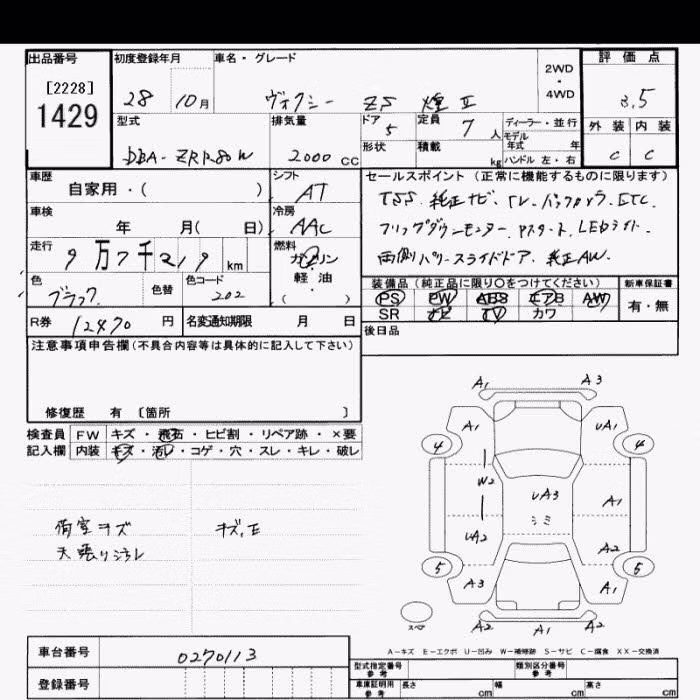 出品番号 初度登録年月 車名・グレード 2WD・4WD 評価点
[2228]
1429
28 10月 ヴォクシー ZS 煌Ⅱ 3.5
型式 排気量 ドア 5 定員 7人 ディーラー・並行 外装 内装
DBA-ZRR80W 2000 CC 形状 積載 kg モデル年式 年 ハンドル 左・右 C C
車歴 自家用・( ) シフト AT セールスポイント(正常に機能するものに限ります)
車検 年 月( 日) 冷房 AAC TSS. 純正ナビ. TV. バックカメラ. ETC.
走行 9万7千219km 燃料 ガソリン 軽・油 ( ) フリップダウンモニター. Pスタート. LEDライト.
両側パワースライドドア. 純正AW.
色 ブラック 色替 色コード 202 装備品(純正品に限り○をつけてください) 新車保証書
PS PW ABS エアB AW 有・無
SR ナビ TV カワ
R券 12470円 名変通知期限 月 日 後日品
注意事項申告欄(不具合内容等は具体的に記入して下さい)
修復歴 有 〔箇所 〕
検査員 FW キズ・飛石・ヒビ割・リペア跡・×要
記入欄 内装 キズ・汚レ・コゲ・穴・スレ・キレ・破レ
荷室キズ キズ,エ
天張りヨゴレ
A1 A3
A1 uA1
4 4
W2 uA3 A1
シミ
uA2 A2
5 5
A3 A1
スペア A2 A1 A2
A-キズ E-エクボ U-凹み W-補修跡 S-サビ C-腐食 XX-交換済
車台番号 0270113
登録番号
型式指定番号 参考 類別区分番号 参考
車庫証明用 参考 長さ cm 幅 cm 高さ cm